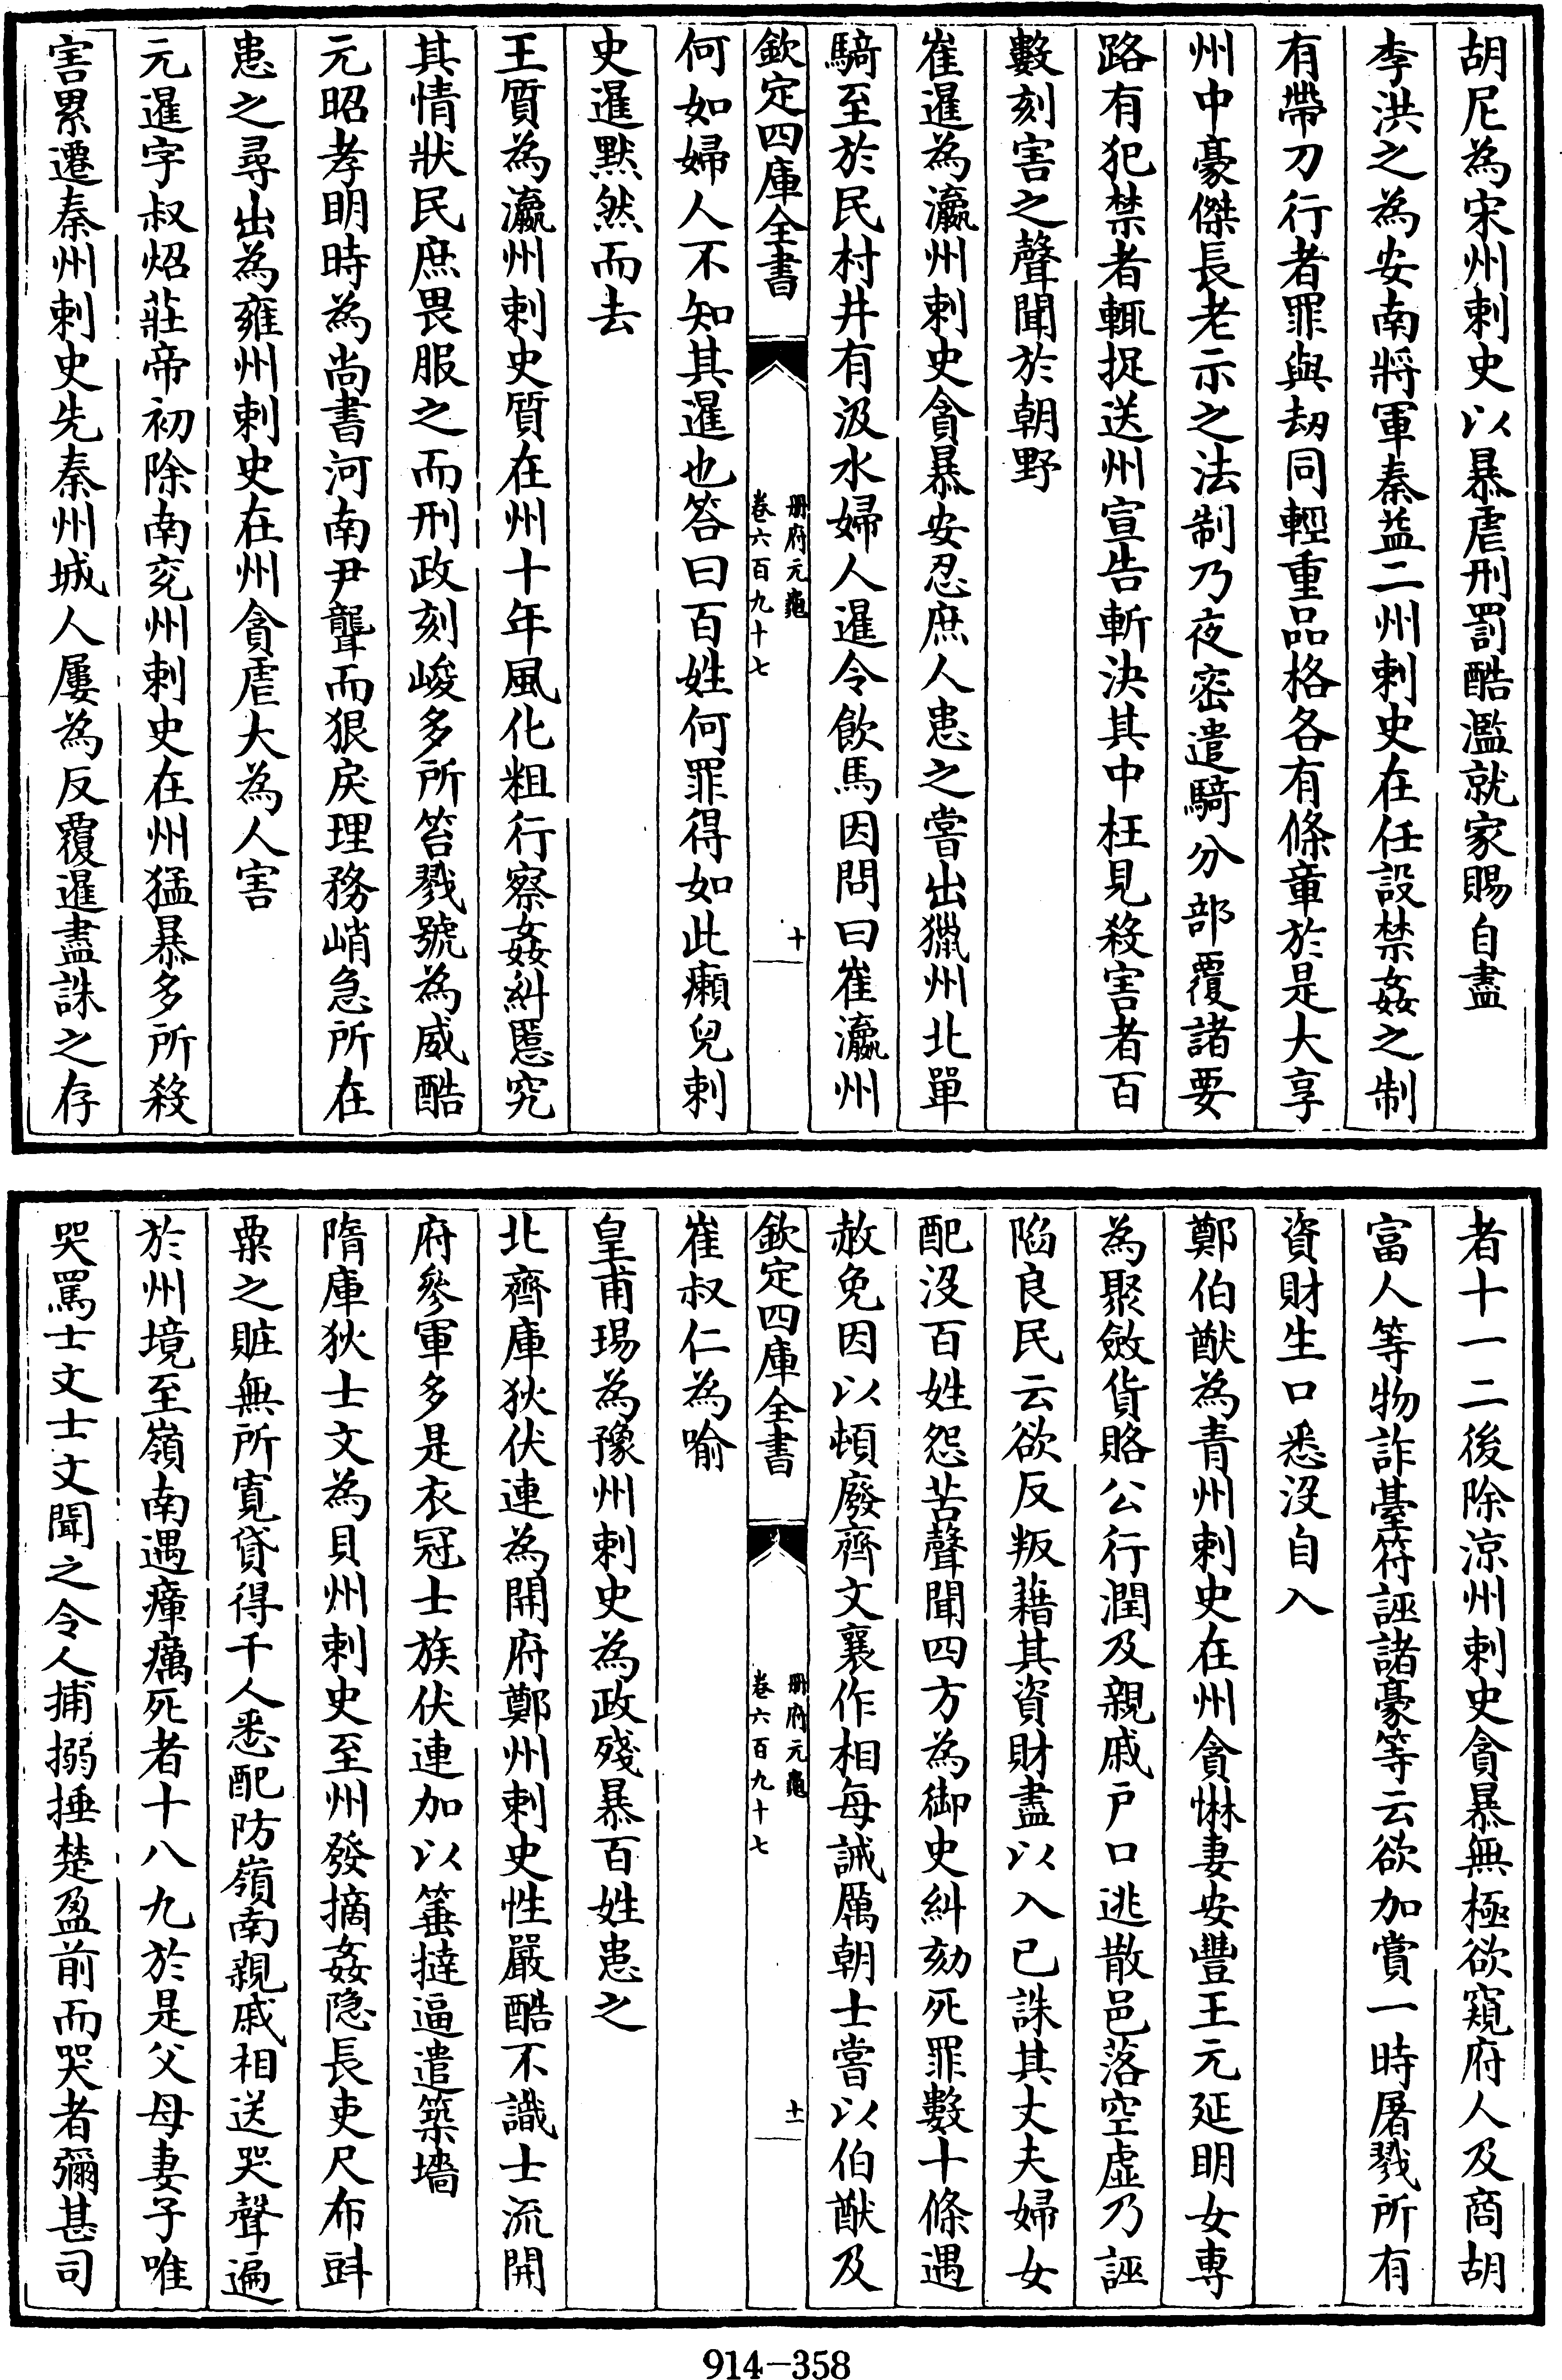 胡尼為宋州刺史以暴虐刑罰酷濫就家賜自盡
李洪之為安南將軍秦益二州刺史在任設禁姦之制
有帶刀行者罪與劫同輕重品格各有條章於是大享
州中豪傑長老示之法制乃夜密遣騎分部覆諸要
路有犯禁者輒捉送州宣告斬決其中枉見殺害者百
數刻害之聲聞於朝野
崔暹為瀛州刺史貪暴安忍庶人患之嘗出獵州北單
騎至於民村井有汲水婦人暹令飲馬因問曰崔瀛州
欽定四庫全書
冊府元龜
卷六百九十七
十
何如婦人不知其暹也答曰百姓何罪得如此癩兒刺
史暹默然而去
王質為瀛州刺史質在州十年風化粗行察姦糾慝究
其情狀民庶畏服之而刑政刻峻多所笞戮號為威酷
元昭孝明時為尚書河南尹聾而狠戾理務峭急所在
患之尋出為雍州刺史在州貪虐大為人害
元暹字叔炤莊帝初除南兗州刺史在州猛暴多所殺
害累遷秦州刺史先秦州城人屢為反覆暹盡誅之存
者十一二後除涼州刺史貪暴無極欲窺府人及商胡
富人等物詐臺符誣諸豪等云欲加賞一時屠戮所有
資財生口悉沒自入
鄭伯猷為青州刺史在州貪惏妻安豐王元延明女專
為聚斂貨賂公行潤及親戚戶口逃散邑落空虛乃誣
陷良民云欲反叛藉其資財盡以入己誅其丈夫婦女
配沒百姓怨苦聲聞四方為御史糾劾死罪數十條遇
赦免因以頓廢齊文襄作相每誡厲朝士嘗以伯猷及
欽定四庫全書
冊府元龜
卷六百九十七
十一
崔叔仁為喻
皇甫瑒為豫州刺史為政殘暴百姓患之
北齊庫狄伏連為開府鄭州刺史性嚴酷不識士流開
府參軍多是衣冠士族伏連加以箠撻逼遣築墻
隋庫狄士文為貝州刺史至州發摘姦隱長吏尺布㪷
粟之贓無所寬貸得千人悉配防嶺南親戚相送哭聲遍
於州境至嶺南遇瘴癘死者十八九於是父母妻子唯
哭罵士文士文聞之令人捕搦捶楚盈前而哭者彌甚司
914-358